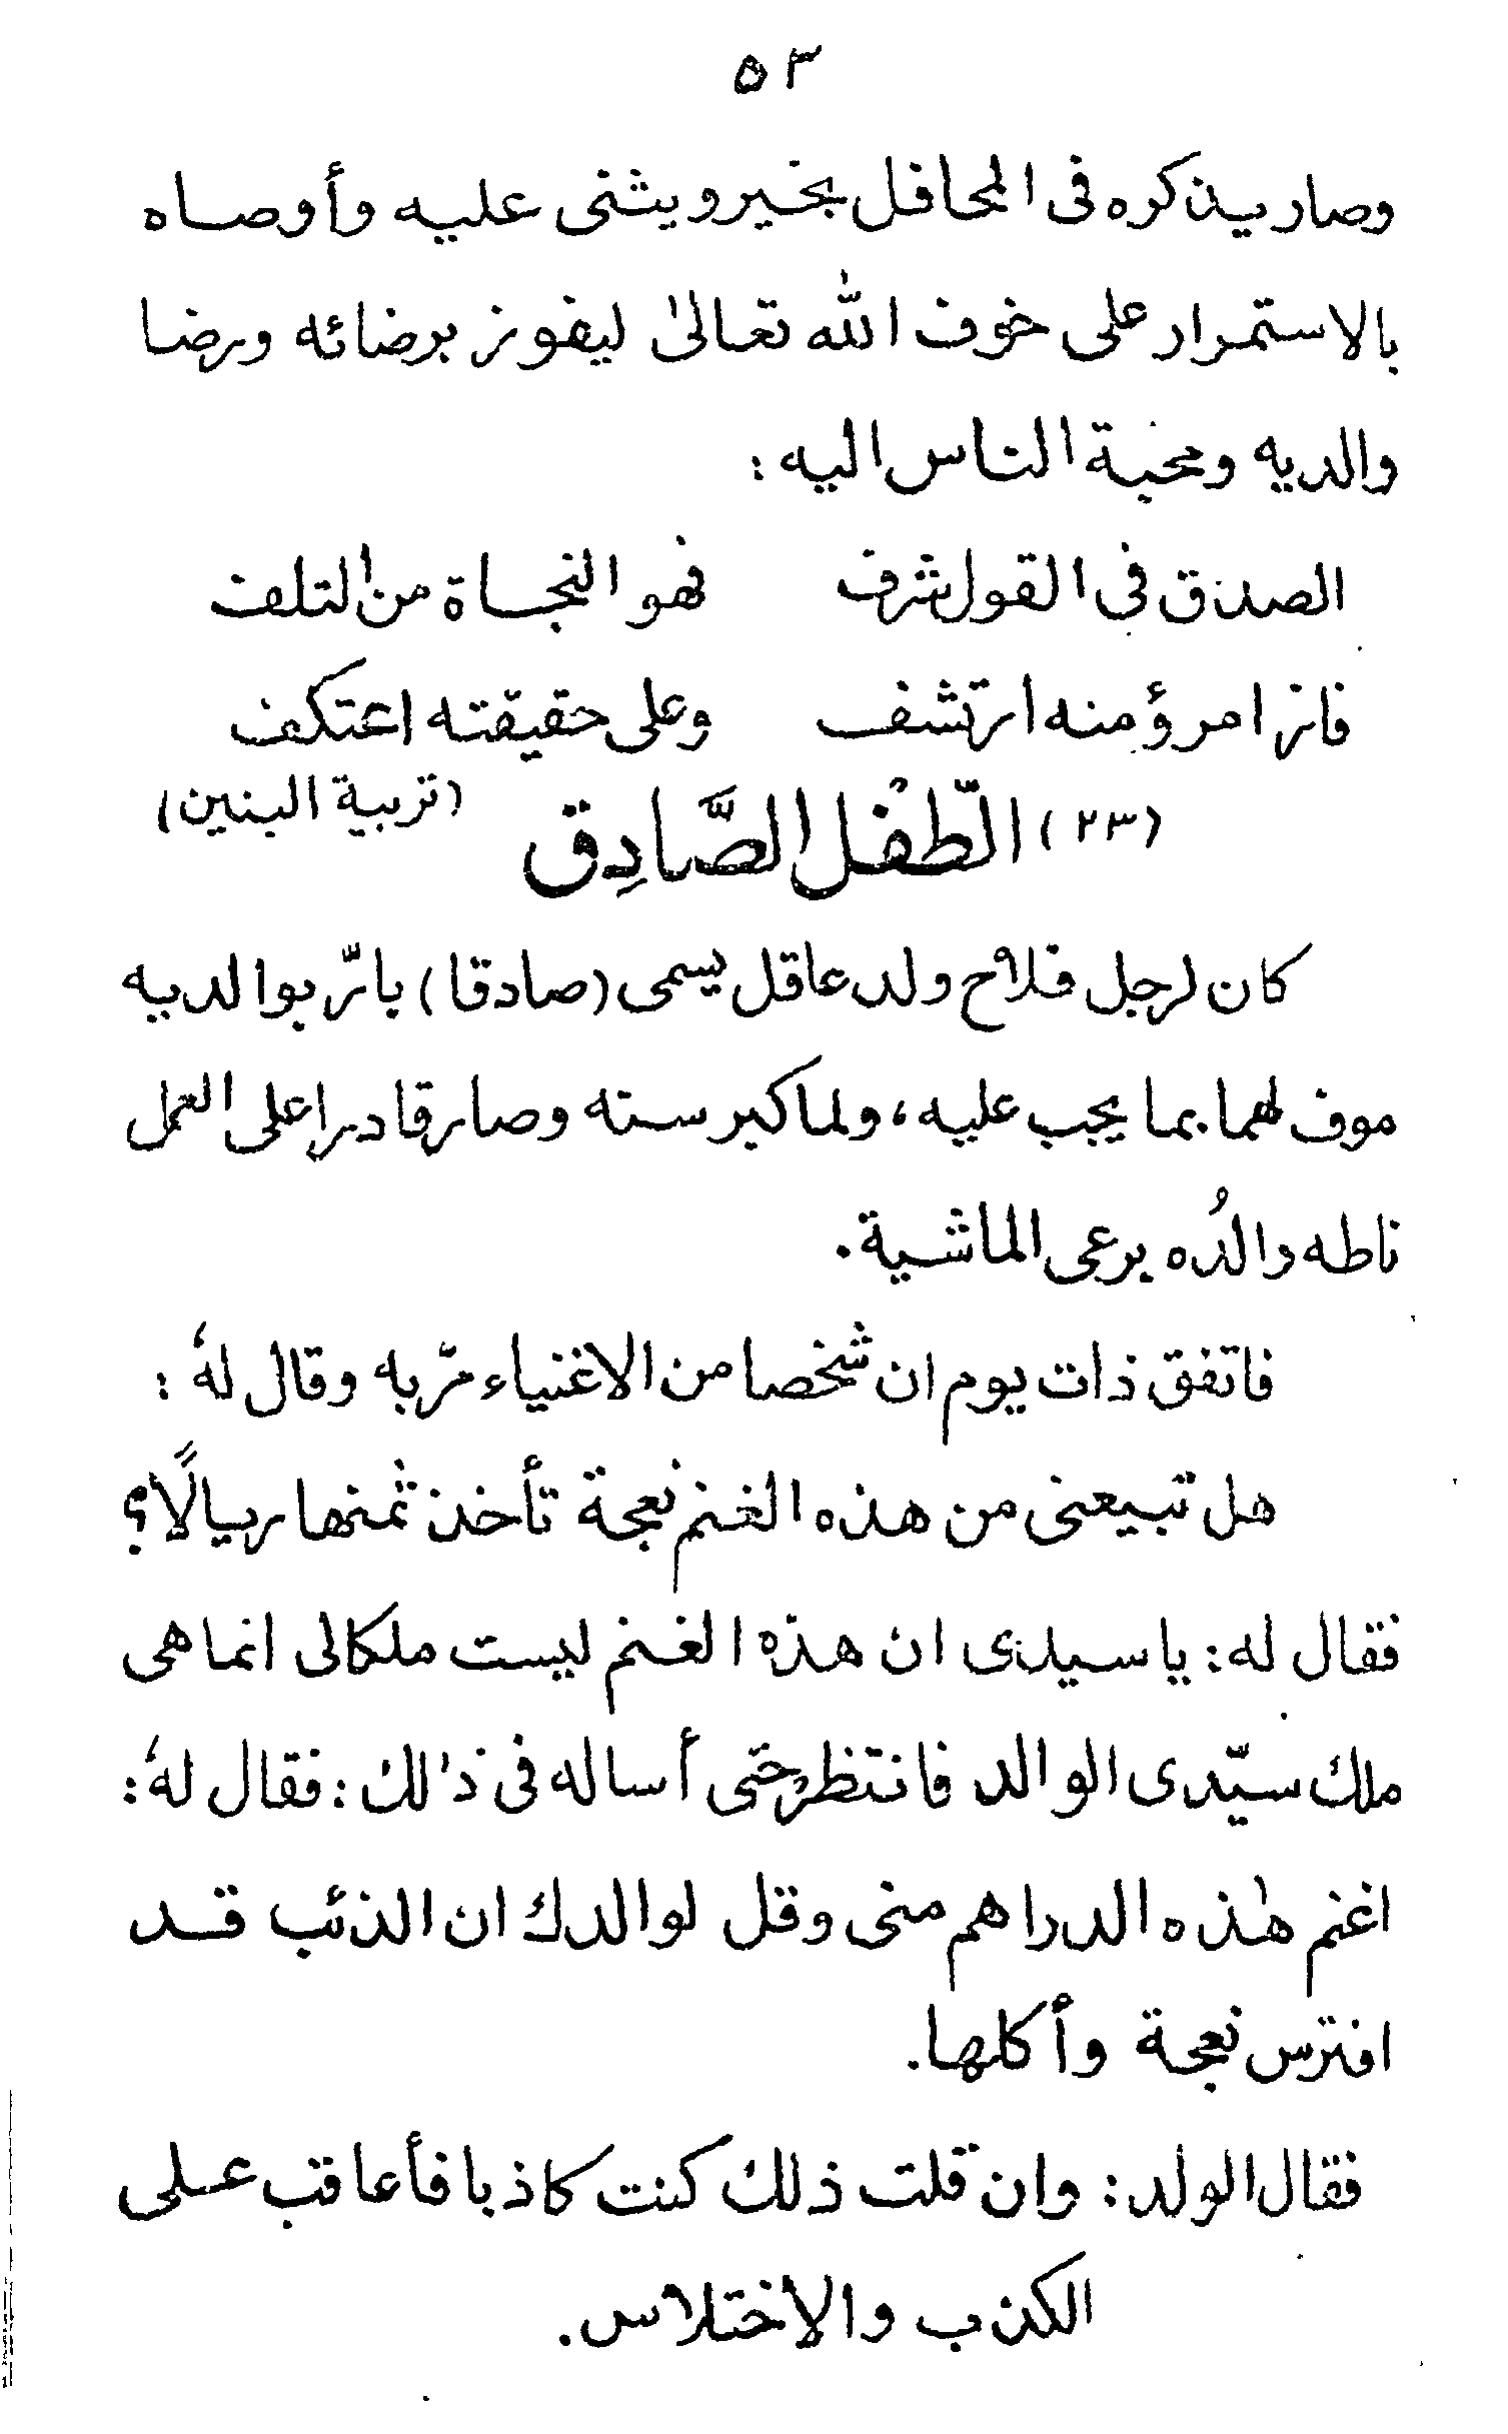 ٥٣
وصار يذكره فى المحافل بخير ويثنى عليه وأوصاه
بالاستمرار على خوف الله تعالىٰ ليفوز برضائه ورضا
والديه ومحبة الناس اليه :
الصدق فى القول شرف فهو النجاة من التلف
فاز امرؤ منه ارتشف وعلى حقيقته اعتكف
(٢٣) الطِّفْل الصَّادِق (تربية البنين)
كان لرجل فلاح ولد عاقل يسمى (صادقا) بارّ بوالديه
موف لهما بما يجب عليه، ولما كبر سنه وصار قادرا على العمل
ناطه والدُه برعى الماشية.
فاتفق ذات يوم ان شخصا من الاغنياء مرّ به وقال لهٗ :
هل تبيعنى من هذه الغنم نعجة تأخذ ثمنها ريالًا؟
فقال له: يا سيدى ان هذه الغنم ليست ملكا لى انما هى
ملك سيّدى الوالد فانتظر حتى أساله فى ذٰلك : فقال لهٗ:
اغنم هٰذه الدراهم منى وقل لوالدك ان الذئب قد
افترس نعجة وأكلها.
فقال الولد: وان قلت ذلك كنت كاذبا فأعاقب على
الكذب والاختلاس.